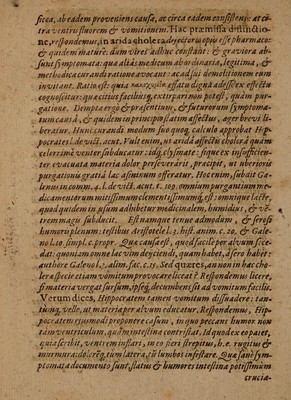 sicca, ab eadem proveniens causa, ac circa eadem consistens: at ci-
tra ventris fluorem & vomitionem. Hac præmissa distinctio-
ne, respondemus, in arida cholera dejectorio opus esse pharmaco:
& quidem mature: dum vires adhuc constant: & graviora ab-
sunt symptomata: qua aliàs medicum ab ordinaria, legitima, &
methodica curandi ratione avocant: ac ad sui demolitionem eum
invitant. Ratio est: quia effatu digna adest fex: effectu
cognoscitur: quæ citius facilius, extirpari non potest, quàm pur-
gatione. Dempta ergo & præsentium, & futurorum symptoma-
tum causâ, & quidem in principio statim affectus, æger brevi li-
beratur. Hunc curandi modum suo quoq; calculo approbat Hip-
pocrates l. de vict. acut. Vult enim, ut aridâ affectis cholicâ quàm
celerrimè venter subducatur: idq; clysmate: siquidem insufficien-
ter evacuata materia dolor perseveraris, præcipit, ut uberioris
purgationis gratiâ lac asininum offeratur. Hoc enim, subait Ga-
lenus in comm. 4. l. de vict. acut. t. 109. omnium purgantium me-
dicamentorum mitissimum clementissimumq; est: omnique lacte,
quod quidem in usum adhibetur medicinalem, humidius, & ex-
tremam ad subducit. Est namque tenue admodum, & serosi
humoris plenum: testibus Aristotele l. 3. hist. anim. c. 20. & Gale-
no l. 10. simpl. c. propr. Qua causa est, quod facile per alvum sece-
dat: quoniam omne lac vim dejiciendi, quam habet, à sero habet:
authore Galeno l. 3. alim. fac. c. 15. Sed quæres, an non in hac cho-
lera siccâ etiam vomitum provocare liceat? Respondemus licere,
si materia vergat sursum, ipseq; decumbens sit ad vomitum facilis.
Verum dices, Hippocratem tamen vomitum dissuadere: tan-
tumq; velle, ut materia per alvum educatur. Respondemus, Hip-
pocratem ejusmodi proponere casum, in quo peccans humor non
tam ventriculum, quàm intestina contristat. Id quod ex eo patet,
quia scribit, ventrem instari, in eo fieri strepitus, h. e. rugitus &
murmura: dolores; cùm latera, tùm lumbos infestare. Qua sanè sym-
ptomata documento sunt, flatus & humores intestina potissimum
crucia-